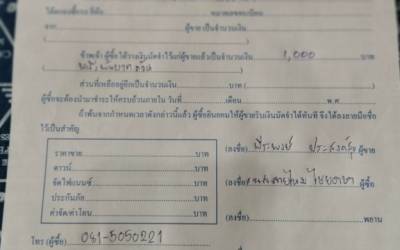 ได้ตกลงซื้อรถ ยี่ห้อ หมายเลขทะเบียน
จาก ผู้ขาย เป็นจำนวนเงิน
ข้าพเจ้า ผู้ซื้อได้วางเงินมัดจำไว้แก่ผู้ขายแล้วเป็นจำนวนเงิน 1,000 บาท
ส่วนที่เหลืออยู่อีกเป็นจำนวนเงิน
ผู้ซื้อจะต้องนำมาชำระให้ครบถ้วนภายใน วันที่ เดือน พ.ศ.
ถ้าพ้นจากกำหนดเวลาดังกล่าวนี้แล้ว ผู้ซื้อยินยอมให้ผู้ขายริบเงินมัดจำได้ทันที จึงได้ลงลายมือชื่อ
ไว้เป็นสำคัญ
ราคาขาย บาท (ลงชื่อ) พีระพงษ์ ผู้ขาย
ดาวน์ บาท
จัดไฟแนนซ์ บาท (ลงชื่อ) ผู้ซื้อ
ประกันภัย บาท
ค่าจัด/ค่าโอน บาท (ลงชื่อ) พยาน
โทร (ผู้ซื้อ) 081-5050221 (ลงชื่อ)